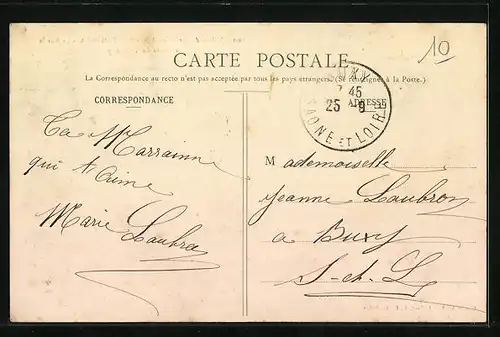 10
CARTE POSTALE
La Correspondance au recto n'est pas acceptée par tous les pays étrangers. (Se renseigner à la Poste.)
CORRESPONDANCE
ADRESSE
7 45
25 9
SAONE ET LOIRE
Ta Marrainne
qui t'aime
Marie Laubron
Mademoiselle
Jeanne Laubron
a Buxy
S-et-L